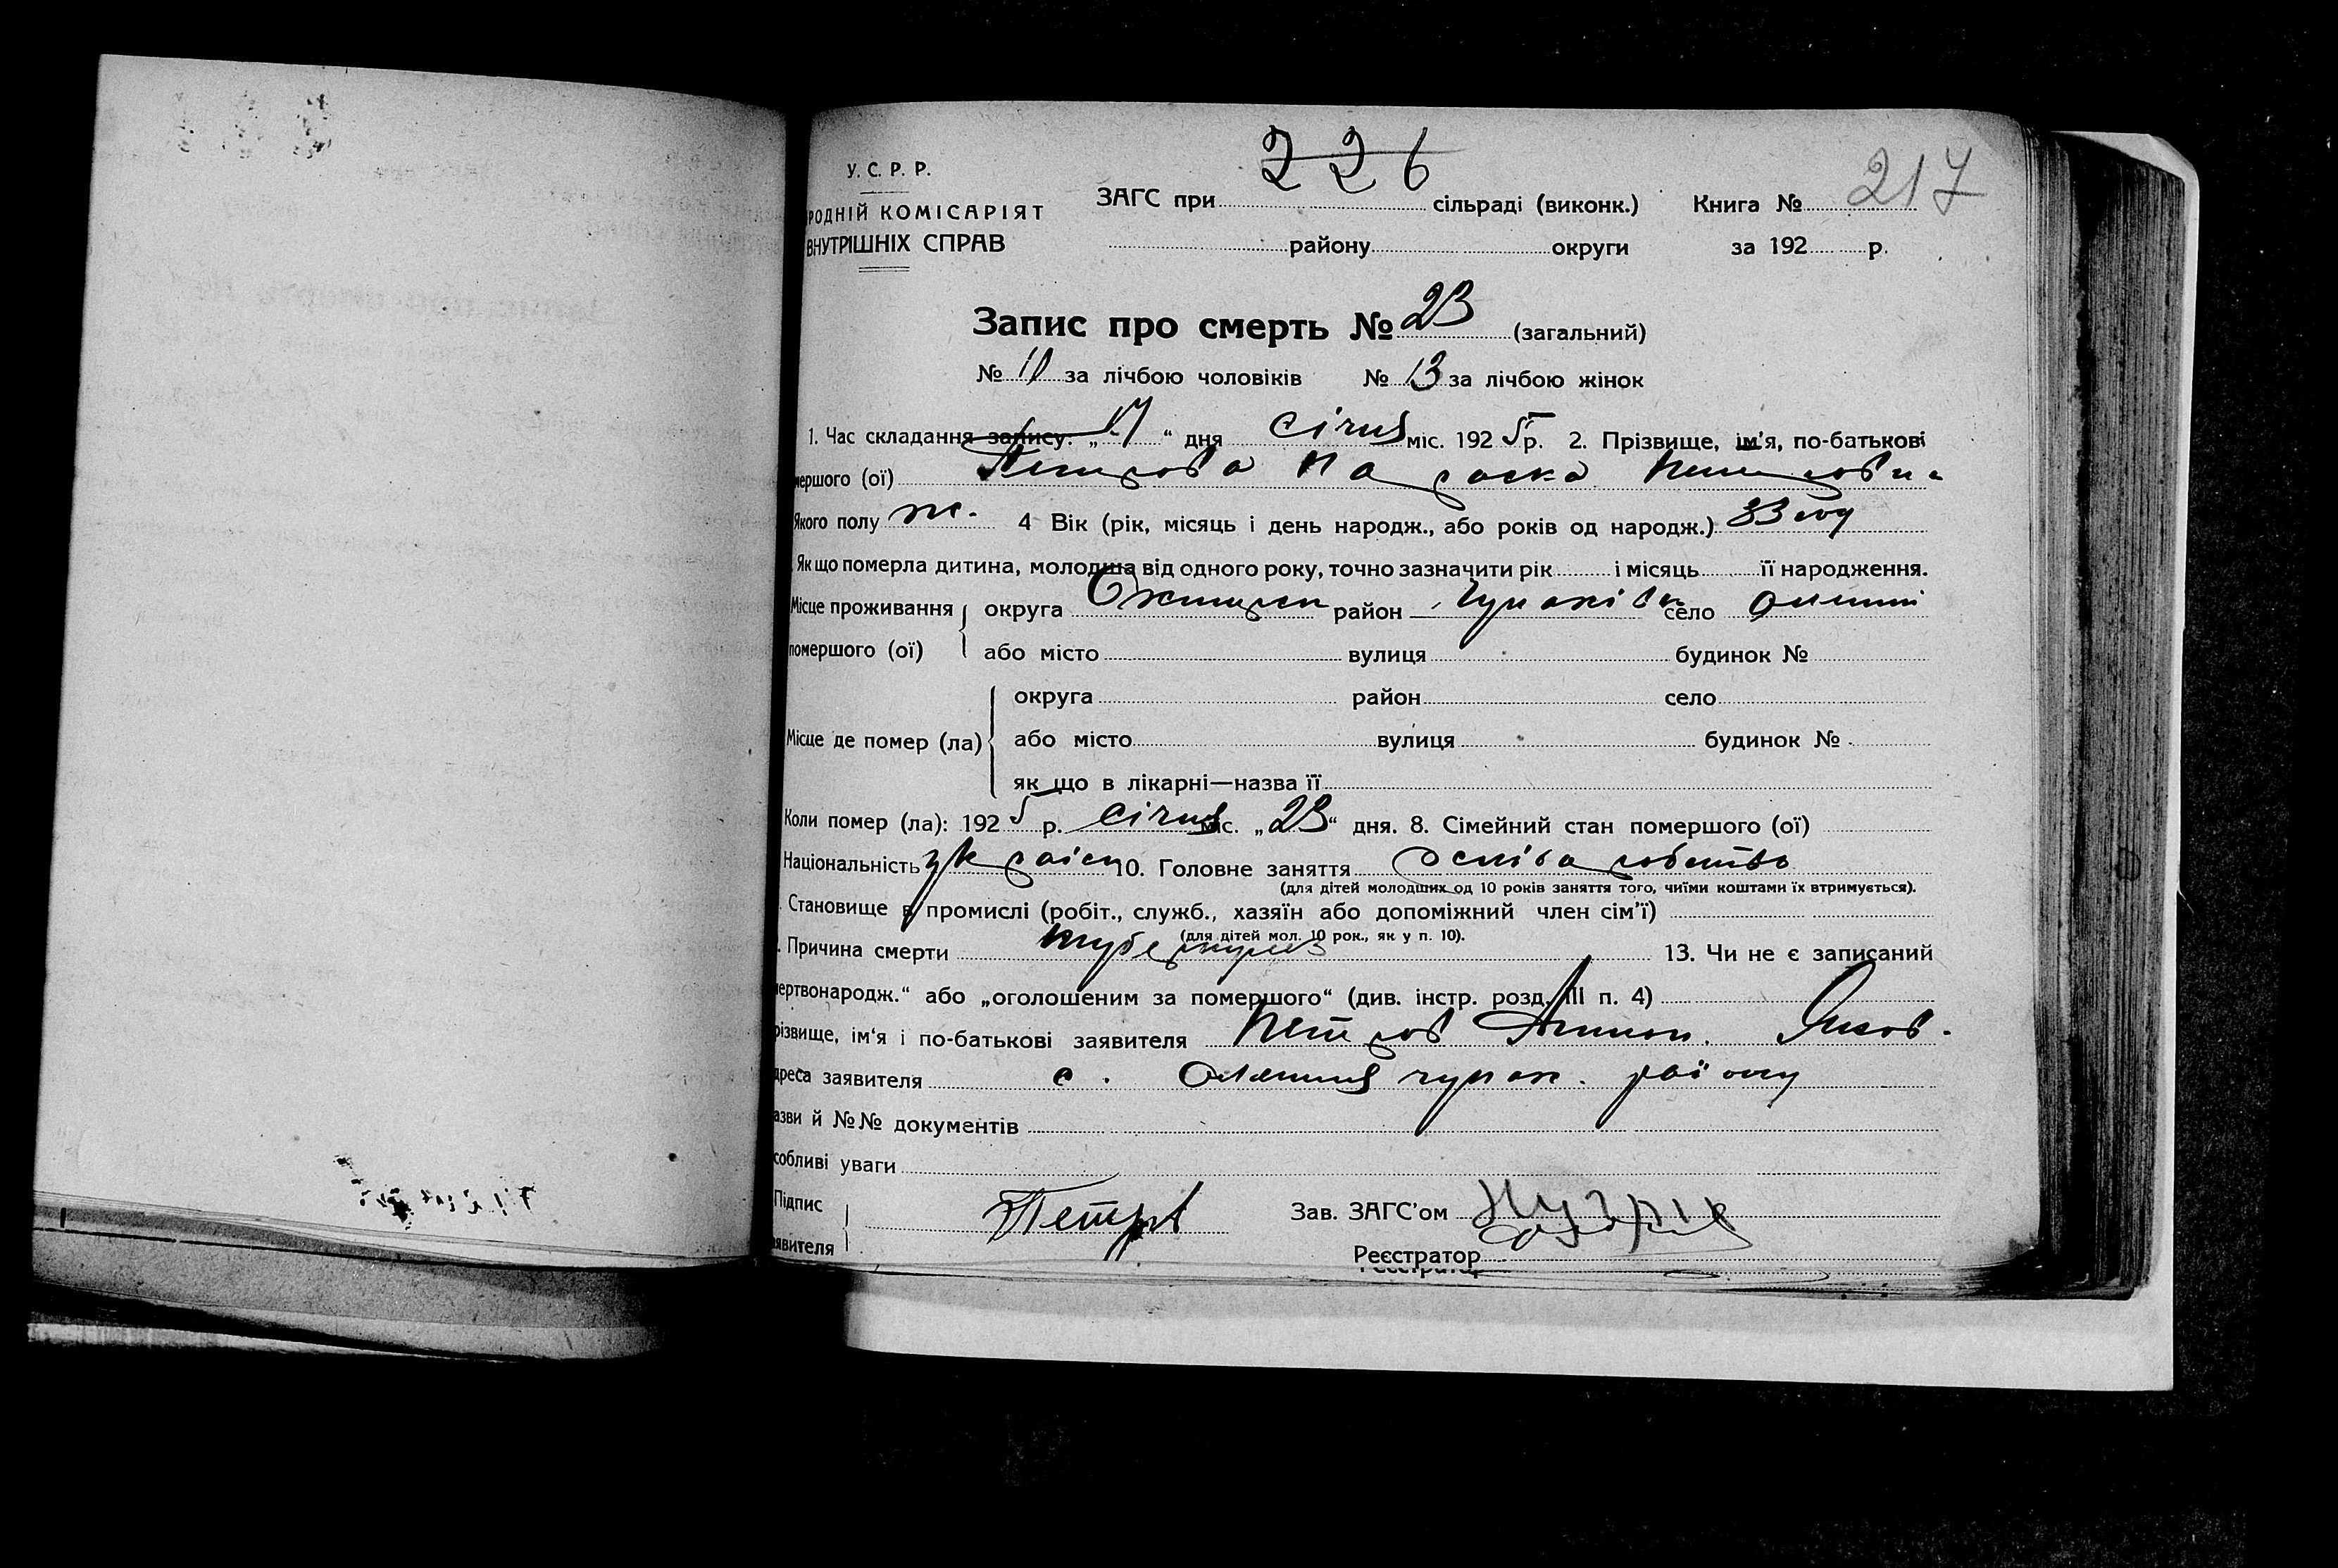 226
217
У. С. Р. Р.
РОДНІЙ КОМІСАРІЯТ
ВНУТРІШНІХ СПРАВ
ЗАГС при сільраді (виконк.) Книга №
району округи за 192 р.
Запис про смерть № 23 (загальний)
№ 10 за лічбою чоловіків № 13 за лічбою жінок
1. Час складання запису: „ “ дня січня міс. 1925 р. 2. Прізвище, ім'я, по-батькові
мершого (ої) Петрова Параска
Якого полу ж. 4 Вік (рік, місяць і день народж., або років од народж.) 33 год
Як що померла дитина, молодша від одного року, точно зазначити рік і місяць її народження.
Місце проживання округа Охтирськ район Чупахівк село
помершого (ої) або місто вулиця будинок №
округа район село
Місце де помер (ла) або місто вулиця будинок №
як що в лікарні—назва її
Коли помер (ла): 1925 р. січня міс. „23“ дня. 8. Сімейний стан помершого (ої)
Національність україн 10. Головне заняття
(для дітей молодших од 10 років заняття того, чиїми коштами їх втримується).
Становище в промислі (робіт., служб., хазяїн або допоміжний член сім'ї)
(для дітей мол. 10 рок., як у п. 10).
Причина смерти туберкульоз 13. Чи не є записаний
ертвонародж.“ або „оголошеним за помершого“ (див. інстр. розд. III п. 4)
різвище, ім'я і по-батькові заявителя Петров Яков.
дреса заявителя с. чупах. району
азви й №№ документів
собливі уваги
Підпис
аявителя Петров
Зав. ЗАГС'ом
Реєстратор